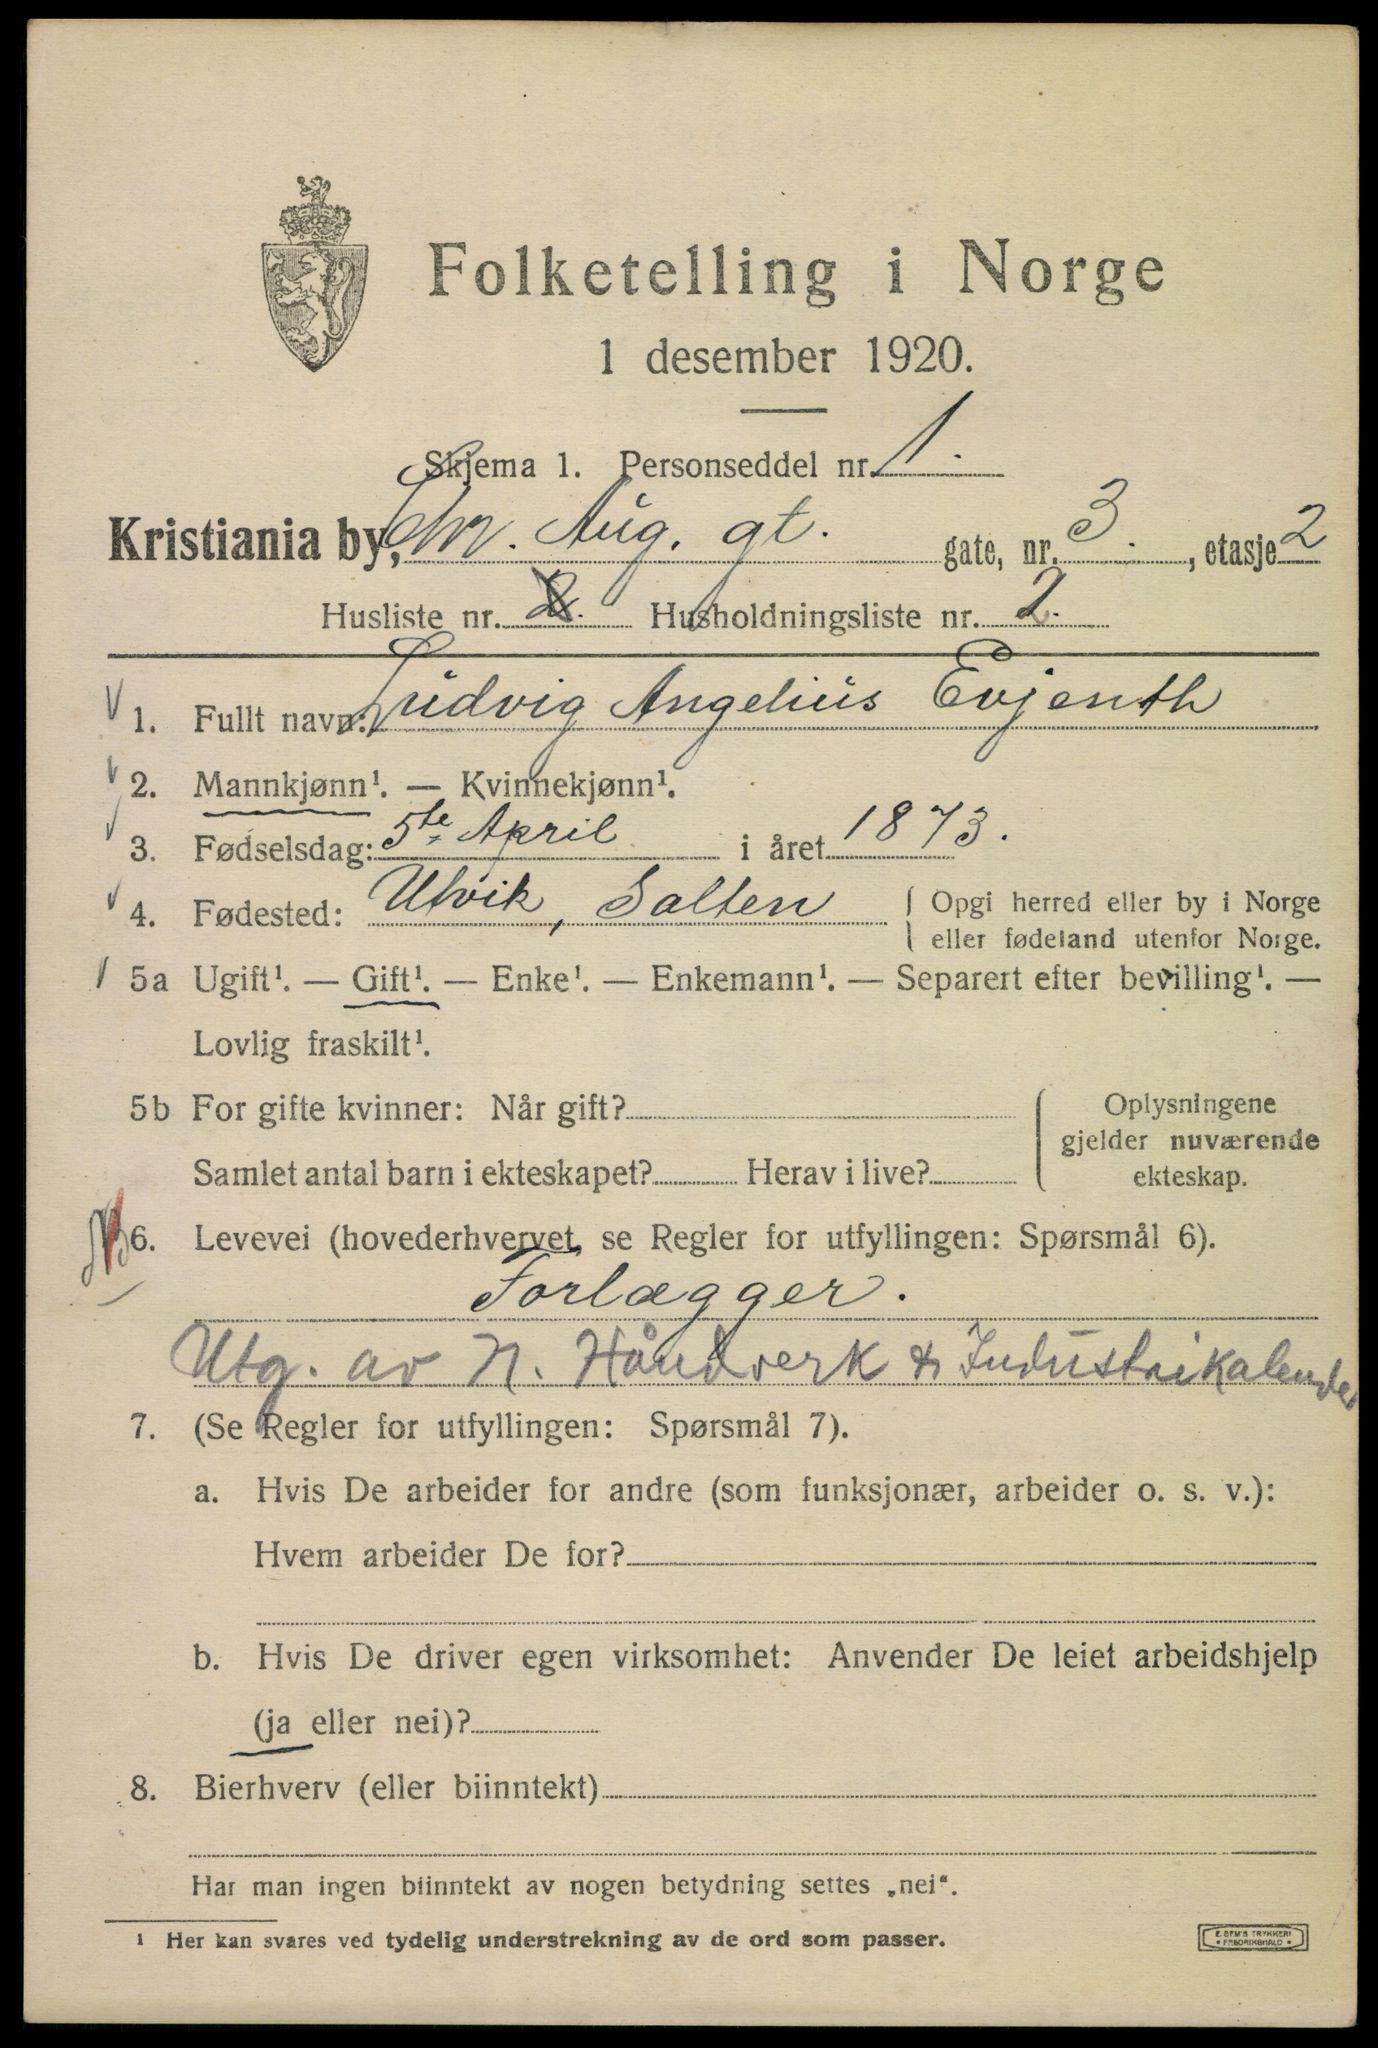 Folketelling i Norge
1 desember 1920.
Skjema 1. Personseddel nr. 1.
Kristiania by, Chr. Aug. gt. gate, nr. 3., etasje 2
Husliste nr. 2. Husholdningsliste nr. 2.
1. Fullt navn: Ludvig Angelius Evjenth
2. Mannkjønn¹. — Kvinnekjønn¹.
3. Fødselsdag: 5te April i året 1873.
4. Fødested: Utvik, Salten { Opgi herred eller by i Norge
eller fødeland utenfor Norge.
5a Ugift¹. — Gift¹. — Enke¹. — Enkemann¹. — Separert efter bevilling¹. —
Lovlig fraskilt¹.
5b For gifte kvinner: Når gift? Oplysningene
gjelder nuværende
Samlet antal barn i ekteskapet? Herav i live? ekteskap.
6. Levevei (hovederhvervet, se Regler for utfyllingen: Spørsmål 6).
Forlægger.
Utg. av N. Håndverk & Industrikalender
7. (Se Regler for utfyllingen: Spørsmål 7).
a. Hvis De arbeider for andre (som funksjonær, arbeider o. s. v.):
Hvem arbeider De for?
b. Hvis De driver egen virksomhet: Anvender De leiet arbeidshjelp
(ja eller nei)?
8. Bierhverv (eller biinntekt)
Har man ingen biinntekt av nogen betydning settes „nei“.
¹ Her kan svares ved tydelig understrekning av de ord som passer.
E. SEM'S TRYKKERI
• FREDRIKSHALD •